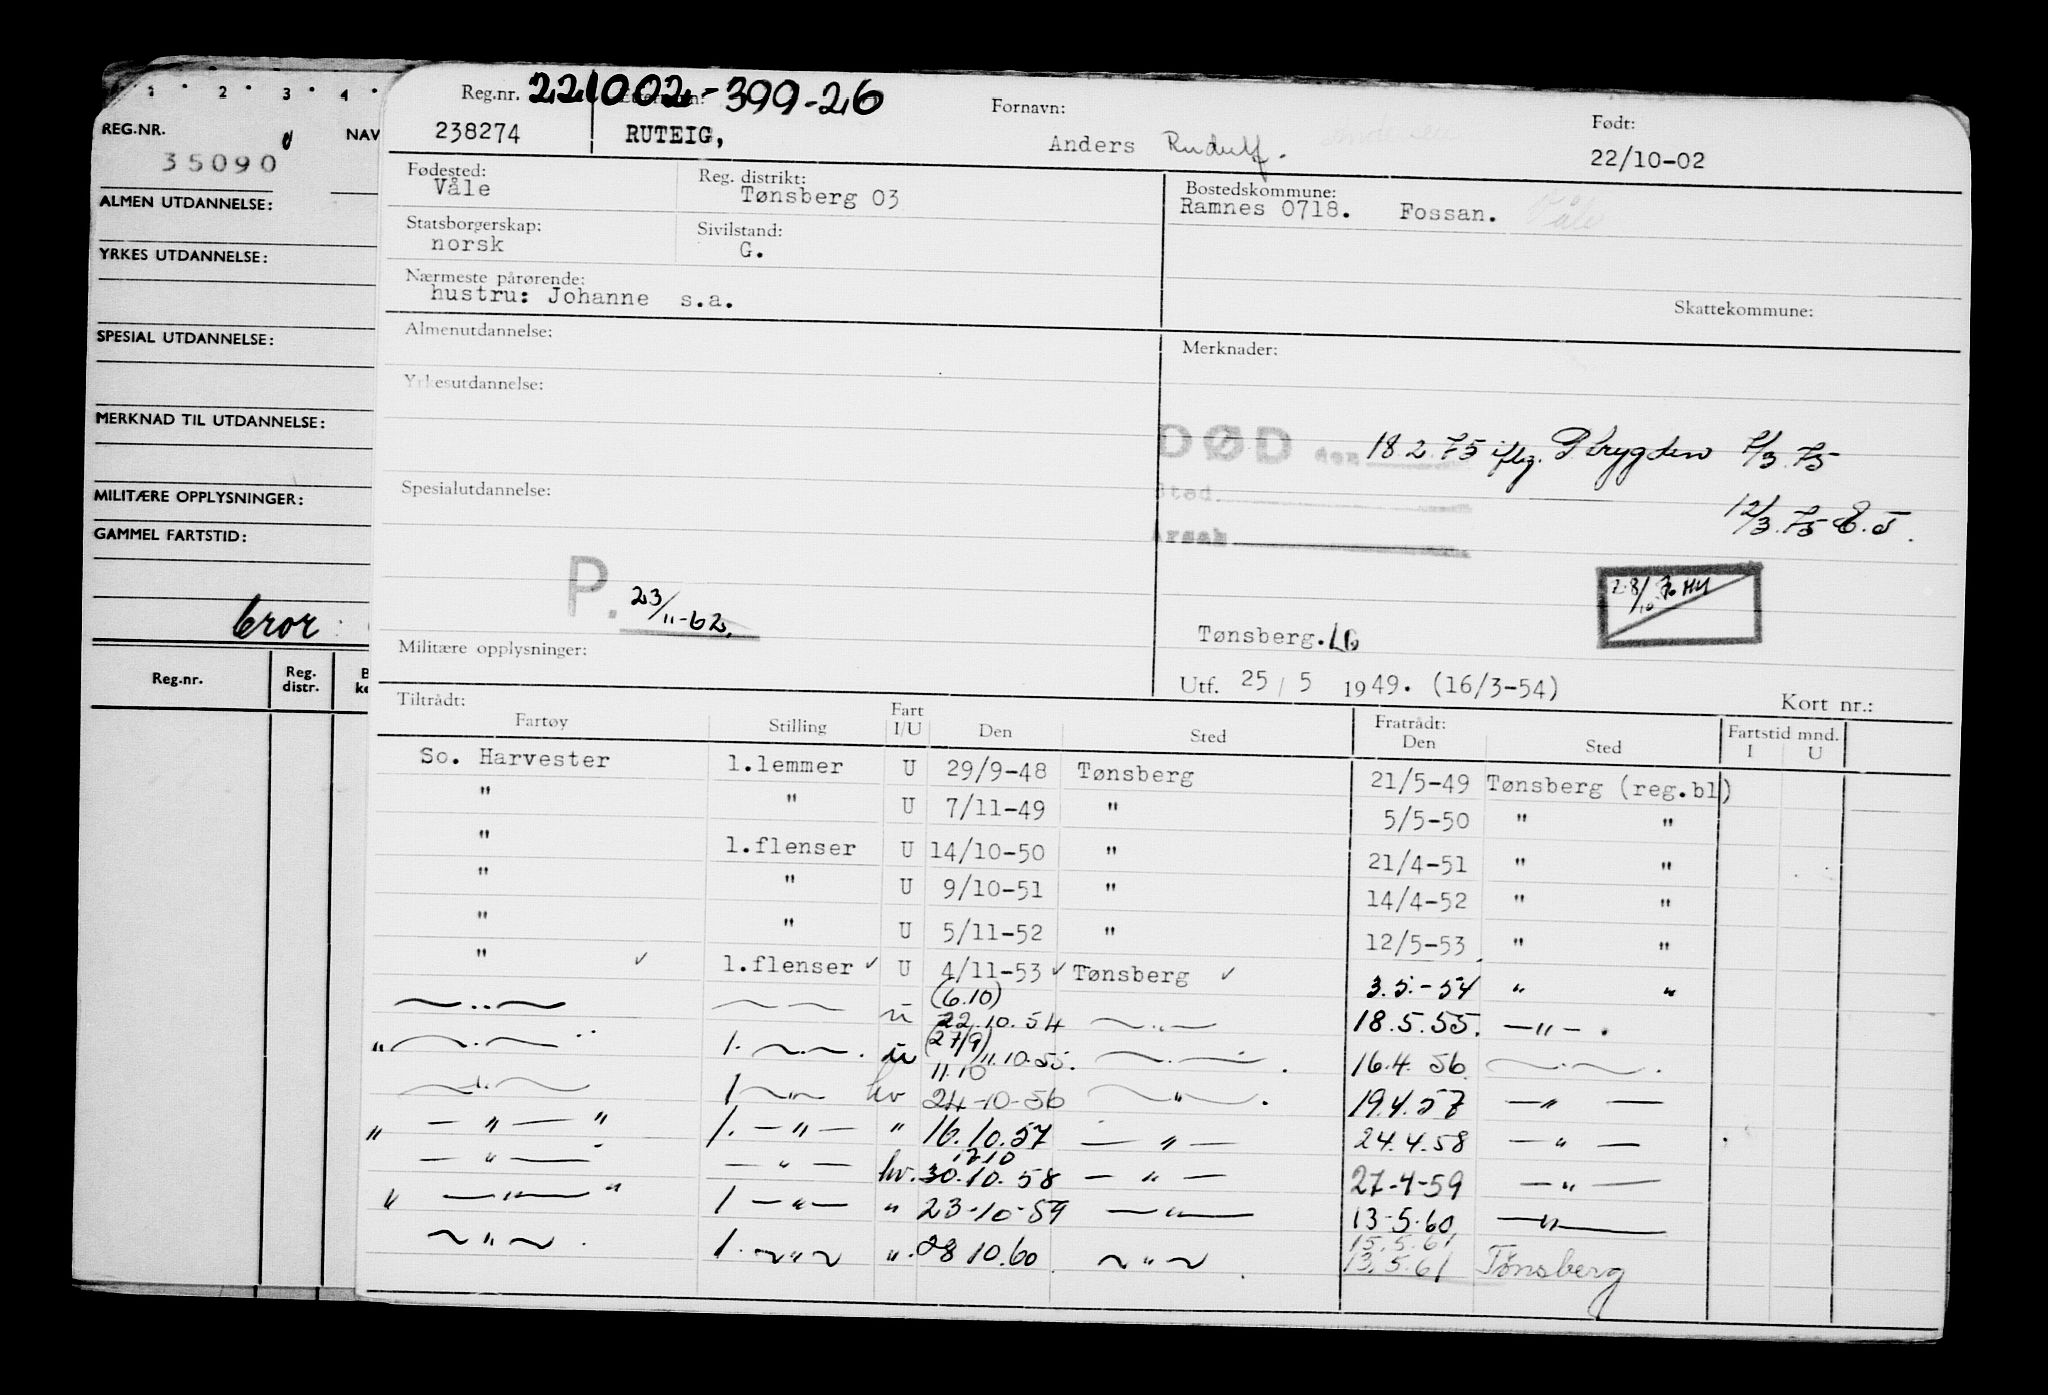 1 · 2 · 3 · 4 ·
REG.NR. NAV
35090
ALMEN UTDANNELSE:
YRKES UTDANNELSE:
SPESIAL UTDANNELSE:
MERKNAD TIL UTDANNELSE:
MILITÆRE OPPLYSNINGER:
GAMMEL FARTSTID:
Reg.nr. Reg. distr.
Reg.nr. 221002-399-26 Fornavn: Født:
238274 RUTEIG, Anders Rudulf. 22/10-02
Fødested: Reg. distrikt: Bostedskommune:
Våle Tønsberg 03 Ramnes 0718. Fossan. Våle
Statsborgerskap: Sivilstand:
norsk G.
Nærmeste pårørende: Skattekommune:
hustru: Johanne s.a.
Almenutdannelse: Merknader:
Yrkesutdannelse:
DØD den 18.2.75 iflg. P.trygden 7/3.75
Spesialutdannelse: Sted
12/3.75 E.J.
Årsak
P. 23/11-62. 28/10 70 HH
Tønsberg.
Militære opplysninger: Utf. 25/5 1949. (16/3-54) Kort nr.:
Tiltrådt: Fratrådt: Fartstid mnd.
Fartøy Stilling Fart I/U Den Sted Den Sted I U
So. Harvester 1.lemmer U 29/9-48 Tønsberg 21/5-49 Tønsberg (reg.bl)
" " U 7/11-49 " 5/5-50 " "
" 1.flenser U 14/10-50 " 21/4-51 " "
" " U 9/10-51 " 14/4-52 " "
" " U 5/11-52 " 12/5-53 " "
" ✓ 1.flenser ✓ U 4/11-53 ✓ Tønsberg ✓ 3.5.-54 " "
(6.10)
—"— —"— u 22.10.54 —"— 18.5.55. —"—.
(27/9)
"—"— 1. —"—. u 11.10 11.10.55. —"—. 16.4.56. —"—.
—"— 1 —"— hv 24-10-56 —"—. 19.4.57 —"—
" —"— " 1. —"— " 16.10.57 —"— 24.4.58 —"—
17.10
—"— —"— hv. 30.10.58 —"— 27-4-59 —"—
" —"— " 1 —"— " 23-10-59 —"— 13-5-60 —"—
15.5.61
—"—. 1. —"— ". 28 10.60 —"—. 13.5.61 Tønsberg